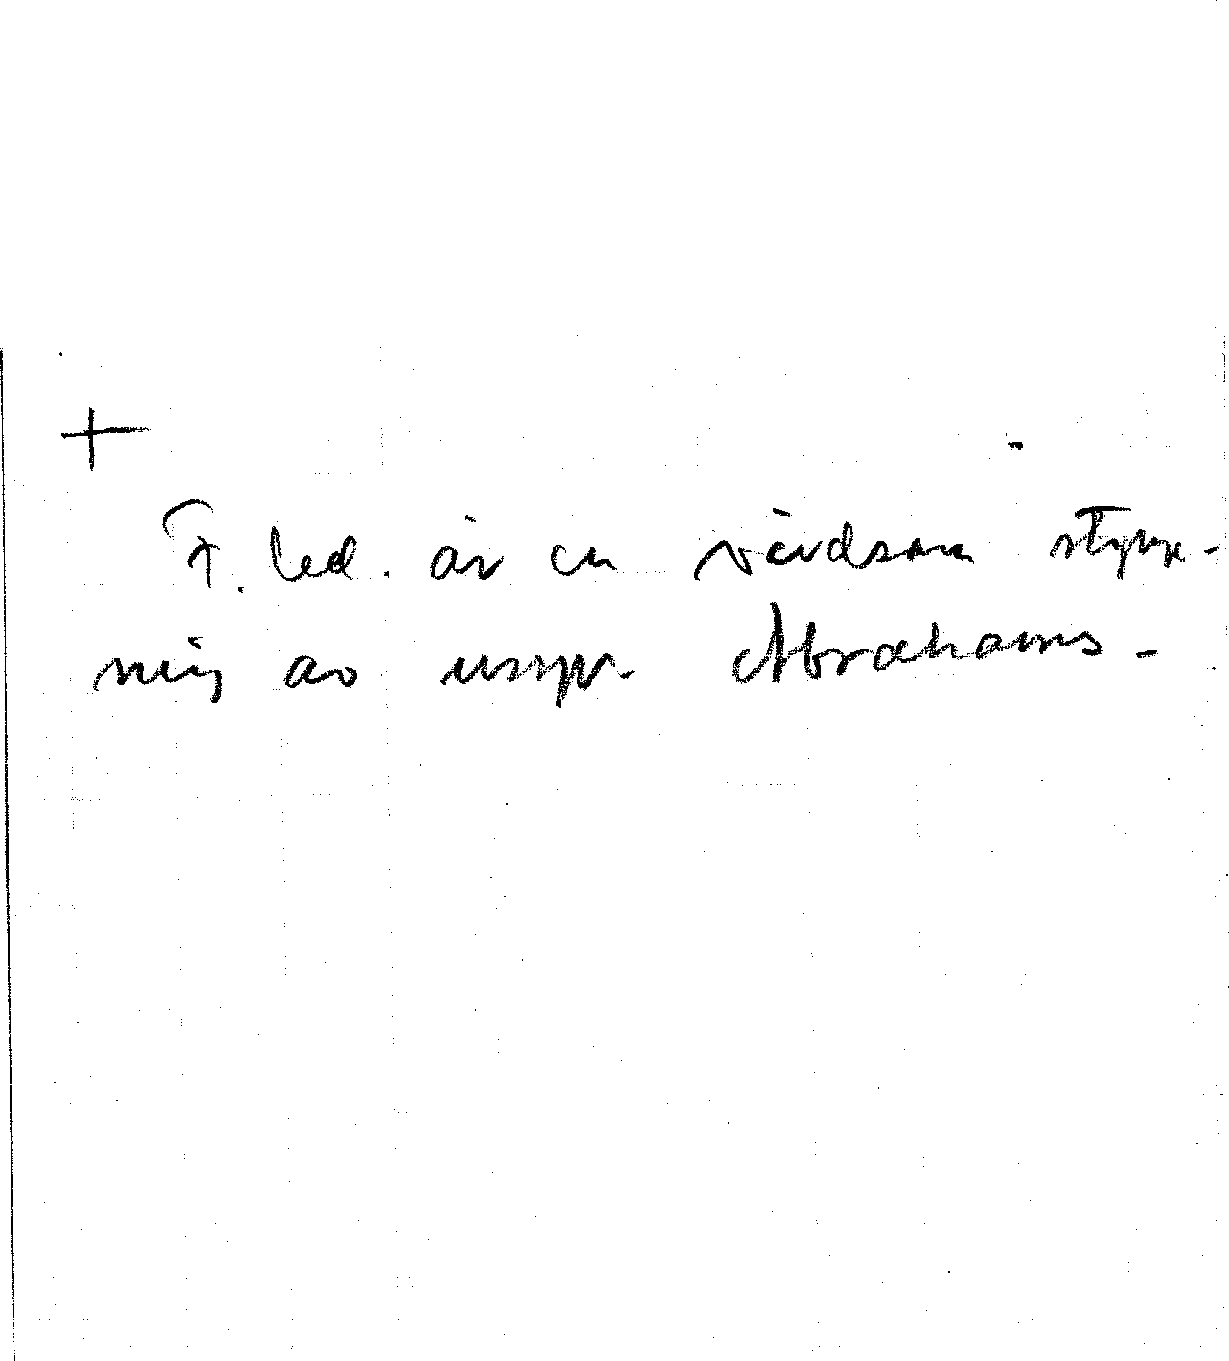 +
F. led. är en vårdsam stymp-
ning av urspr. Abrahams-